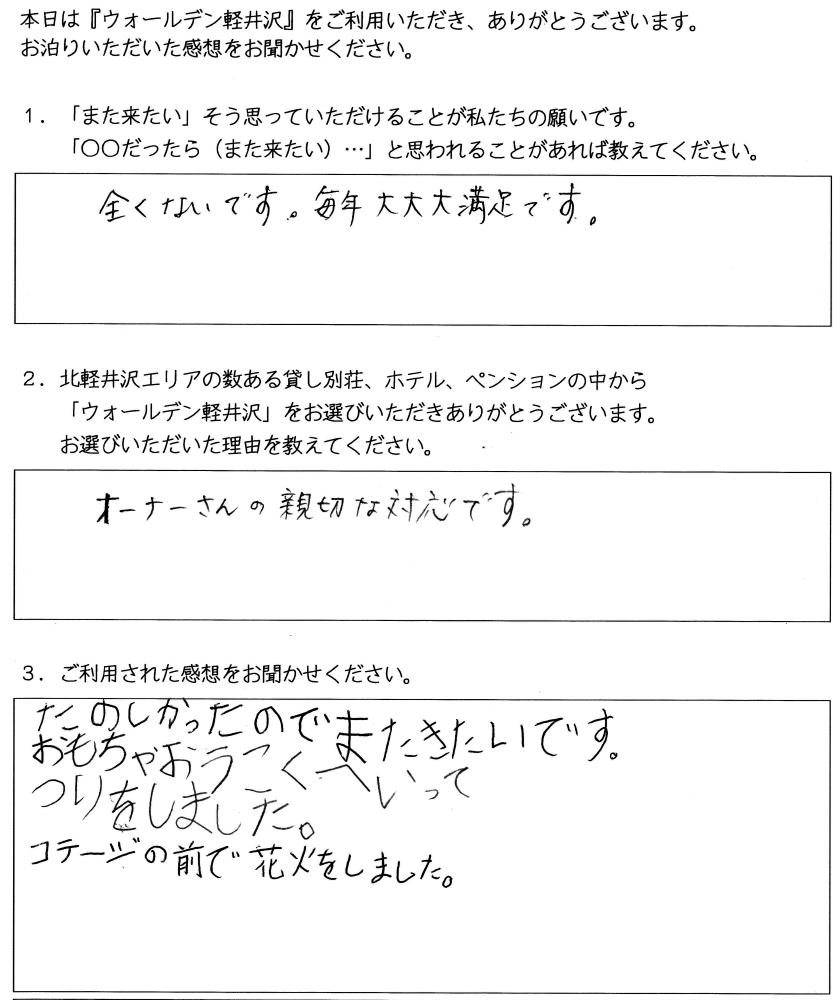 本日は『ウォールデン軽井沢』をご利用いただき、ありがとうございます。
お泊りいただいた感想をお聞かせください。
１．「また来たい」そう思っていただけることが私たちの願いです。
「〇〇だったら（また来たい）…」と思われることがあれば教えてください。
全くないです。毎年大大大満足です。
２．北軽井沢エリアの数ある貸し別荘、ホテル、ペンションの中から
「ウォールデン軽井沢」をお選びいただきありがとうございます。
お選びいただいた理由を教えてください。
オーナーさんの親切な対応です。
３．ご利用された感想をお聞かせください。
たのしかったのでまたきたいです。
おもちゃおうこくへいって
つりをしました。
コテージの前で花火をしました。